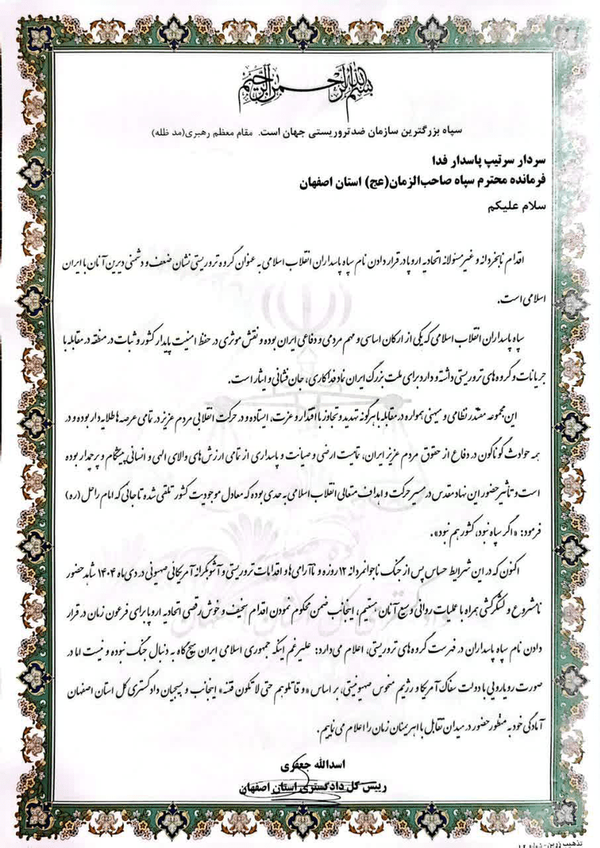 بسم الله الرحمن الرحیم
سپاه بزرگترین سازمان ضدتروریستی جهان است. مقام معظم رهبری(مد ظله)
سردار سرتیپ پاسدار فدا
فرمانده محترم سپاه صاحب‌الزمان(عج) استان اصفهان
سلام علیکم
اقدام نابخردانه و غیرمسئولانه اتحادیه اروپا در قرار دادن نام سپاه پاسداران انقلاب اسلامی به عنوان گروه تروریستی نشان ضعف و دشمنی دیرین آنان با ایران
اسلامی است.
سپاه پاسداران انقلاب اسلامی که یکی از ارکان اساسی و مهم مردمی و دفاعی ایران بوده و نقش موثری در حفظ امنیت پایدار کشور و ثبات در منطقه در مقابله با
جریانات و گروه های تروریستی داشته و دارد برای ملت بزرگ ایران نماد فداکاری، جان‌فشانی و ایثار است.
این مجموعه مقتدر نظامی و میهنی همواره در مقابله با هرگونه تهدید و تجاوز با اقتدار و عزت، ایستاده و در حرکت انقلابی مردم عزیز در تمامی عرصه ها طلایه دار بوده و در
همه حوادث گوناگون در دفاع از حقوق مردم عزیز ایران، تمامیت ارضی و صیانت و پاسداری از تمامی ارزش های والای الهی و انسانی پیشگام و پرچمدار بوده
است و تأثیر حضور این نهاد مقدس در مسیر حرکت و اهداف متعالی انقلاب اسلامی به حدی بوده که معادل موجودیت کشور تلقی شده تا جائی که امام راحل (ره)
فرمود: «اگر سپاه نبود، کشور هم نبود».
اکنون که در این شرایط حساس پس از جنگ ناجوانمردانه ۱۲ روزه و ناآرامی‌ها و اقدامات تروریستی و آشوبگرانه آمریکائی صهیونی در دی ماه ۱۴۰۴ شاهد حضور
نامشروع و لشکرکشی همراه با عملیات روانی وسیع آنان هستیم، اینجانب ضمن محکوم نمودن اقدام سخیف و خوش رقصی اتحادیه اروپا برای فرعون زمان در قرار
دادن نام سپاه پاسداران در فهرست گروه های تروریستی، اعلام می دارد: علیرغم اینکه جمهوری اسلامی ایران هیچ گاه به دنبال جنگ نبوده و نیست اما در
صورت رویارویی با دولت سفاک آمریکا و رژیم منحوس صهیونیستی، بر اساس «و قاتلوهم حتی لا تکون فتنه» اینجانب و بسیجیان دادگستری کل استان اصفهان
آمادگی خود به منظور حضور در میدان تقابل با اهریمنان زمان را اعلام می نماییم.
اسدالله جعفری
رییس کل دادگستری استان اصفهان
تذهیب زرین- شماره ۱۲